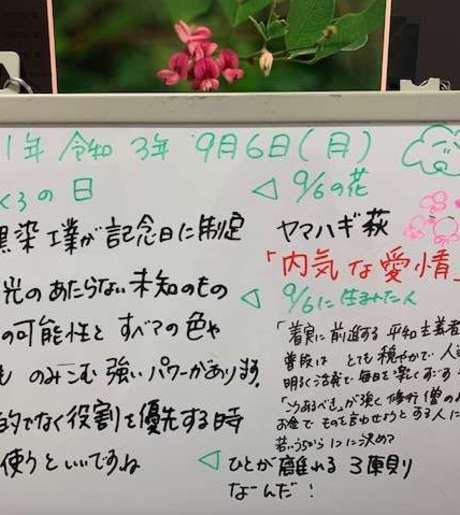 1年 令和 3年 9月6日(月)
くろの日
黒染工業が記念日に制定
光のあたらない未知のもの
の可能性と すべての色や
も のみこむ 強いパワーがあります。
的でなく役割を優先する時
使うといいですね
◁ 9/6の花
ヤマハギ萩
「内気な愛情」
◁ 9/6に生まれた人
「着実に前進する 平和主義者
普段は とても 穏やかで 人
明るく 活発で 毎日を楽しくすごす
「こうあるべき」が強く 修行僧の
お金で ものを言わせようとする人に
若いうちから に決め?
◁ ひとが離れる 3原則
なーんだ!